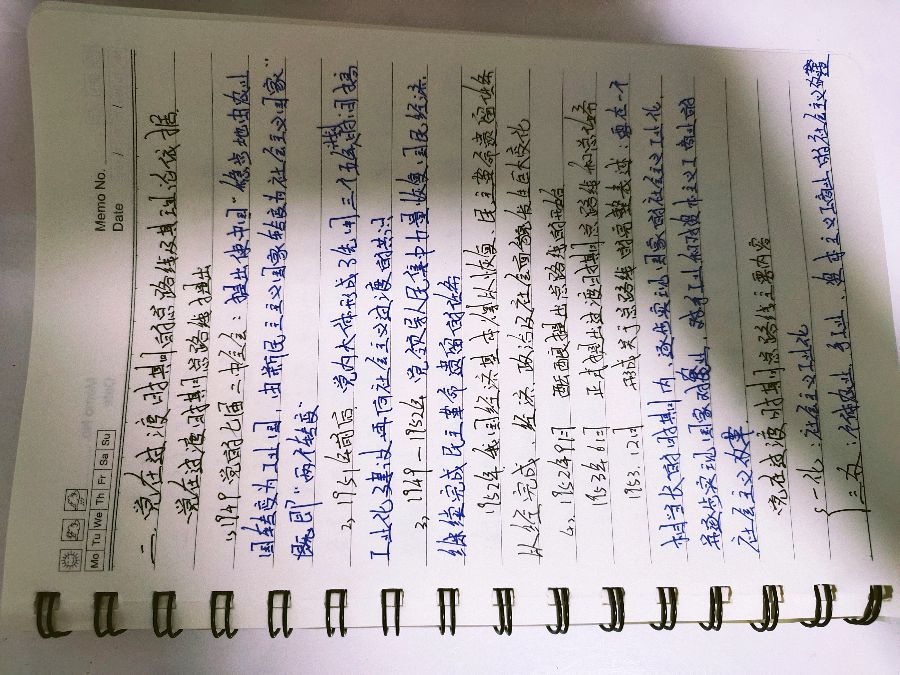 Memo No.
Date / /
Mo Tu We Th Fr Sa Su
一、党在过渡时期的总路线及其理论依据
党在过渡时期总路线提出
1、1949 党的七届二中全会：提出使中国"稳步地由农业
国转变为工业国，由新民主主义国家转变为社会主义国家"
即"两个转变"
2、1951年前后 党内大体形成了先用三个五年时间搞
工业化建设再向社会主义过渡的共识
3、1949－1952年 党领导人民集中力量恢复国民经济，
继续完成民主革命遗留的任务
1952年底国经济基本全以恢复、民主革命遗留任务
以经完成、经济、政治及社会面貌发生巨大变化
4、1952年9月 酝酿提出总路线的开始
1953年6月 正式提出过渡时期总路线和总任务
1953.12月 形成关于总路线的完整表述：要在一个
相当长的时期内，逐步实现国家的社会主义工业化，
并逐步实现国家对农业，对手工业和对资本主义工商业的
社会主义改革
党在过渡时期总路线主要内容
一化：社会主义工业化
三改：个体农业、手工业、资本主义工商业的社会主义改革